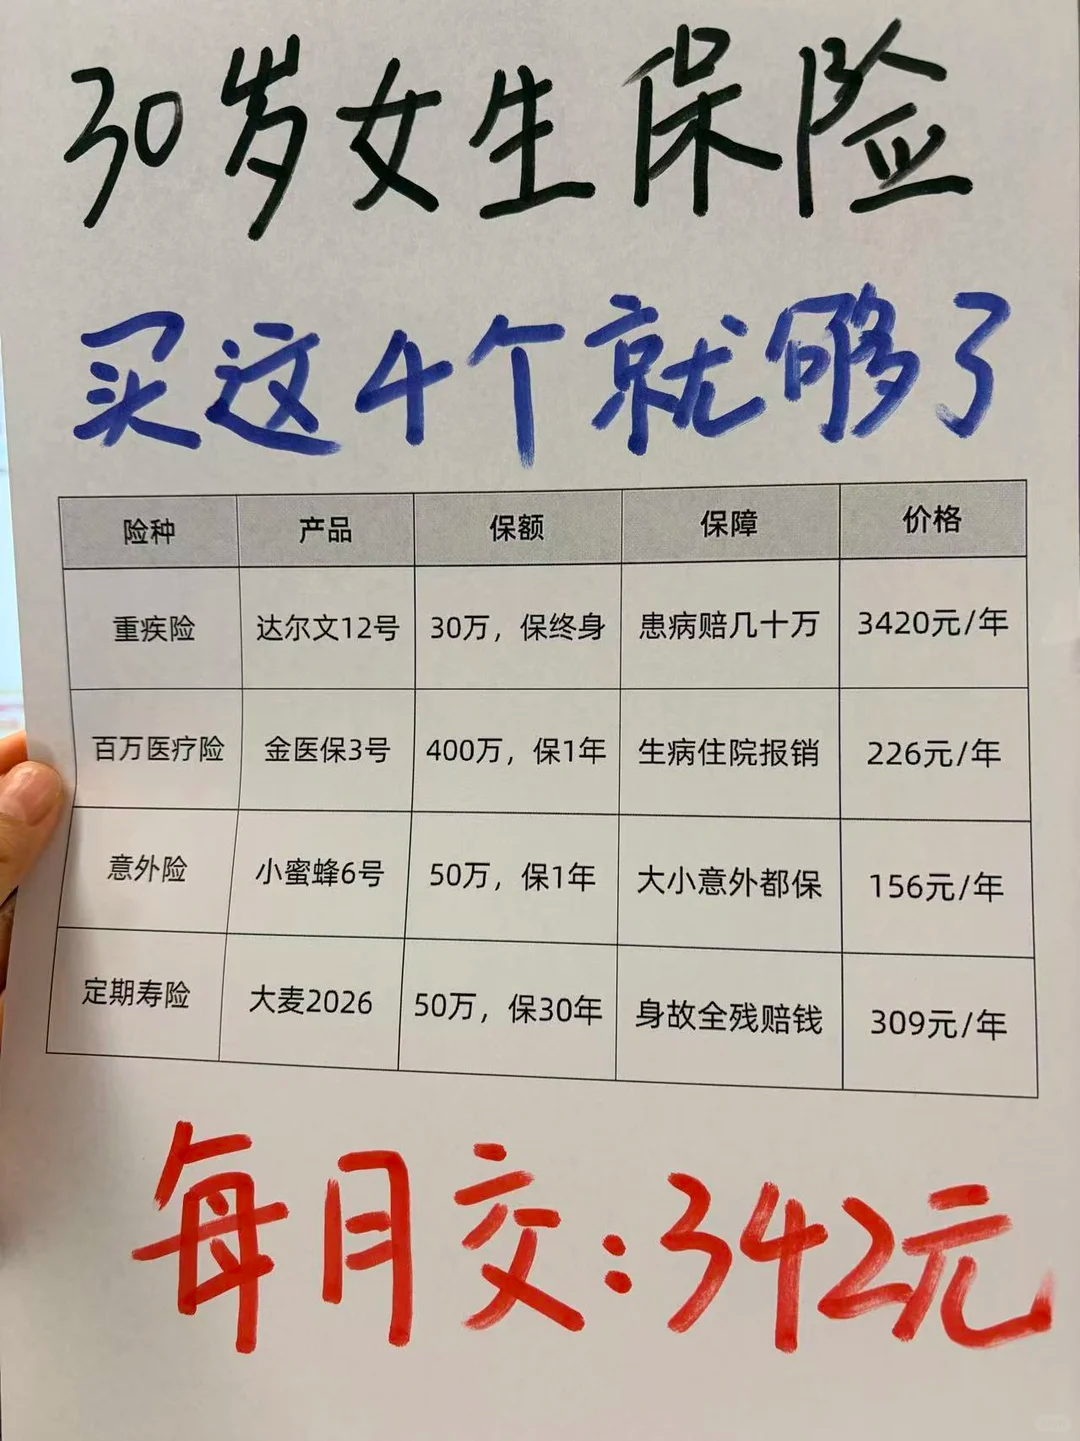 30岁女生保险
买这4个就够了
险种 产品 保额 保障 价格
重疾险 达尔文12号 30万，保终身 患病赔几十万 3420元/年
百万医疗险 金医保3号 400万，保1年 生病住院报销 226元/年
意外险 小蜜蜂6号 50万，保1年 大小意外都保 156元/年
定期寿险 大麦2026 50万，保30年 身故全残赔钱 309元/年
每月交:342元